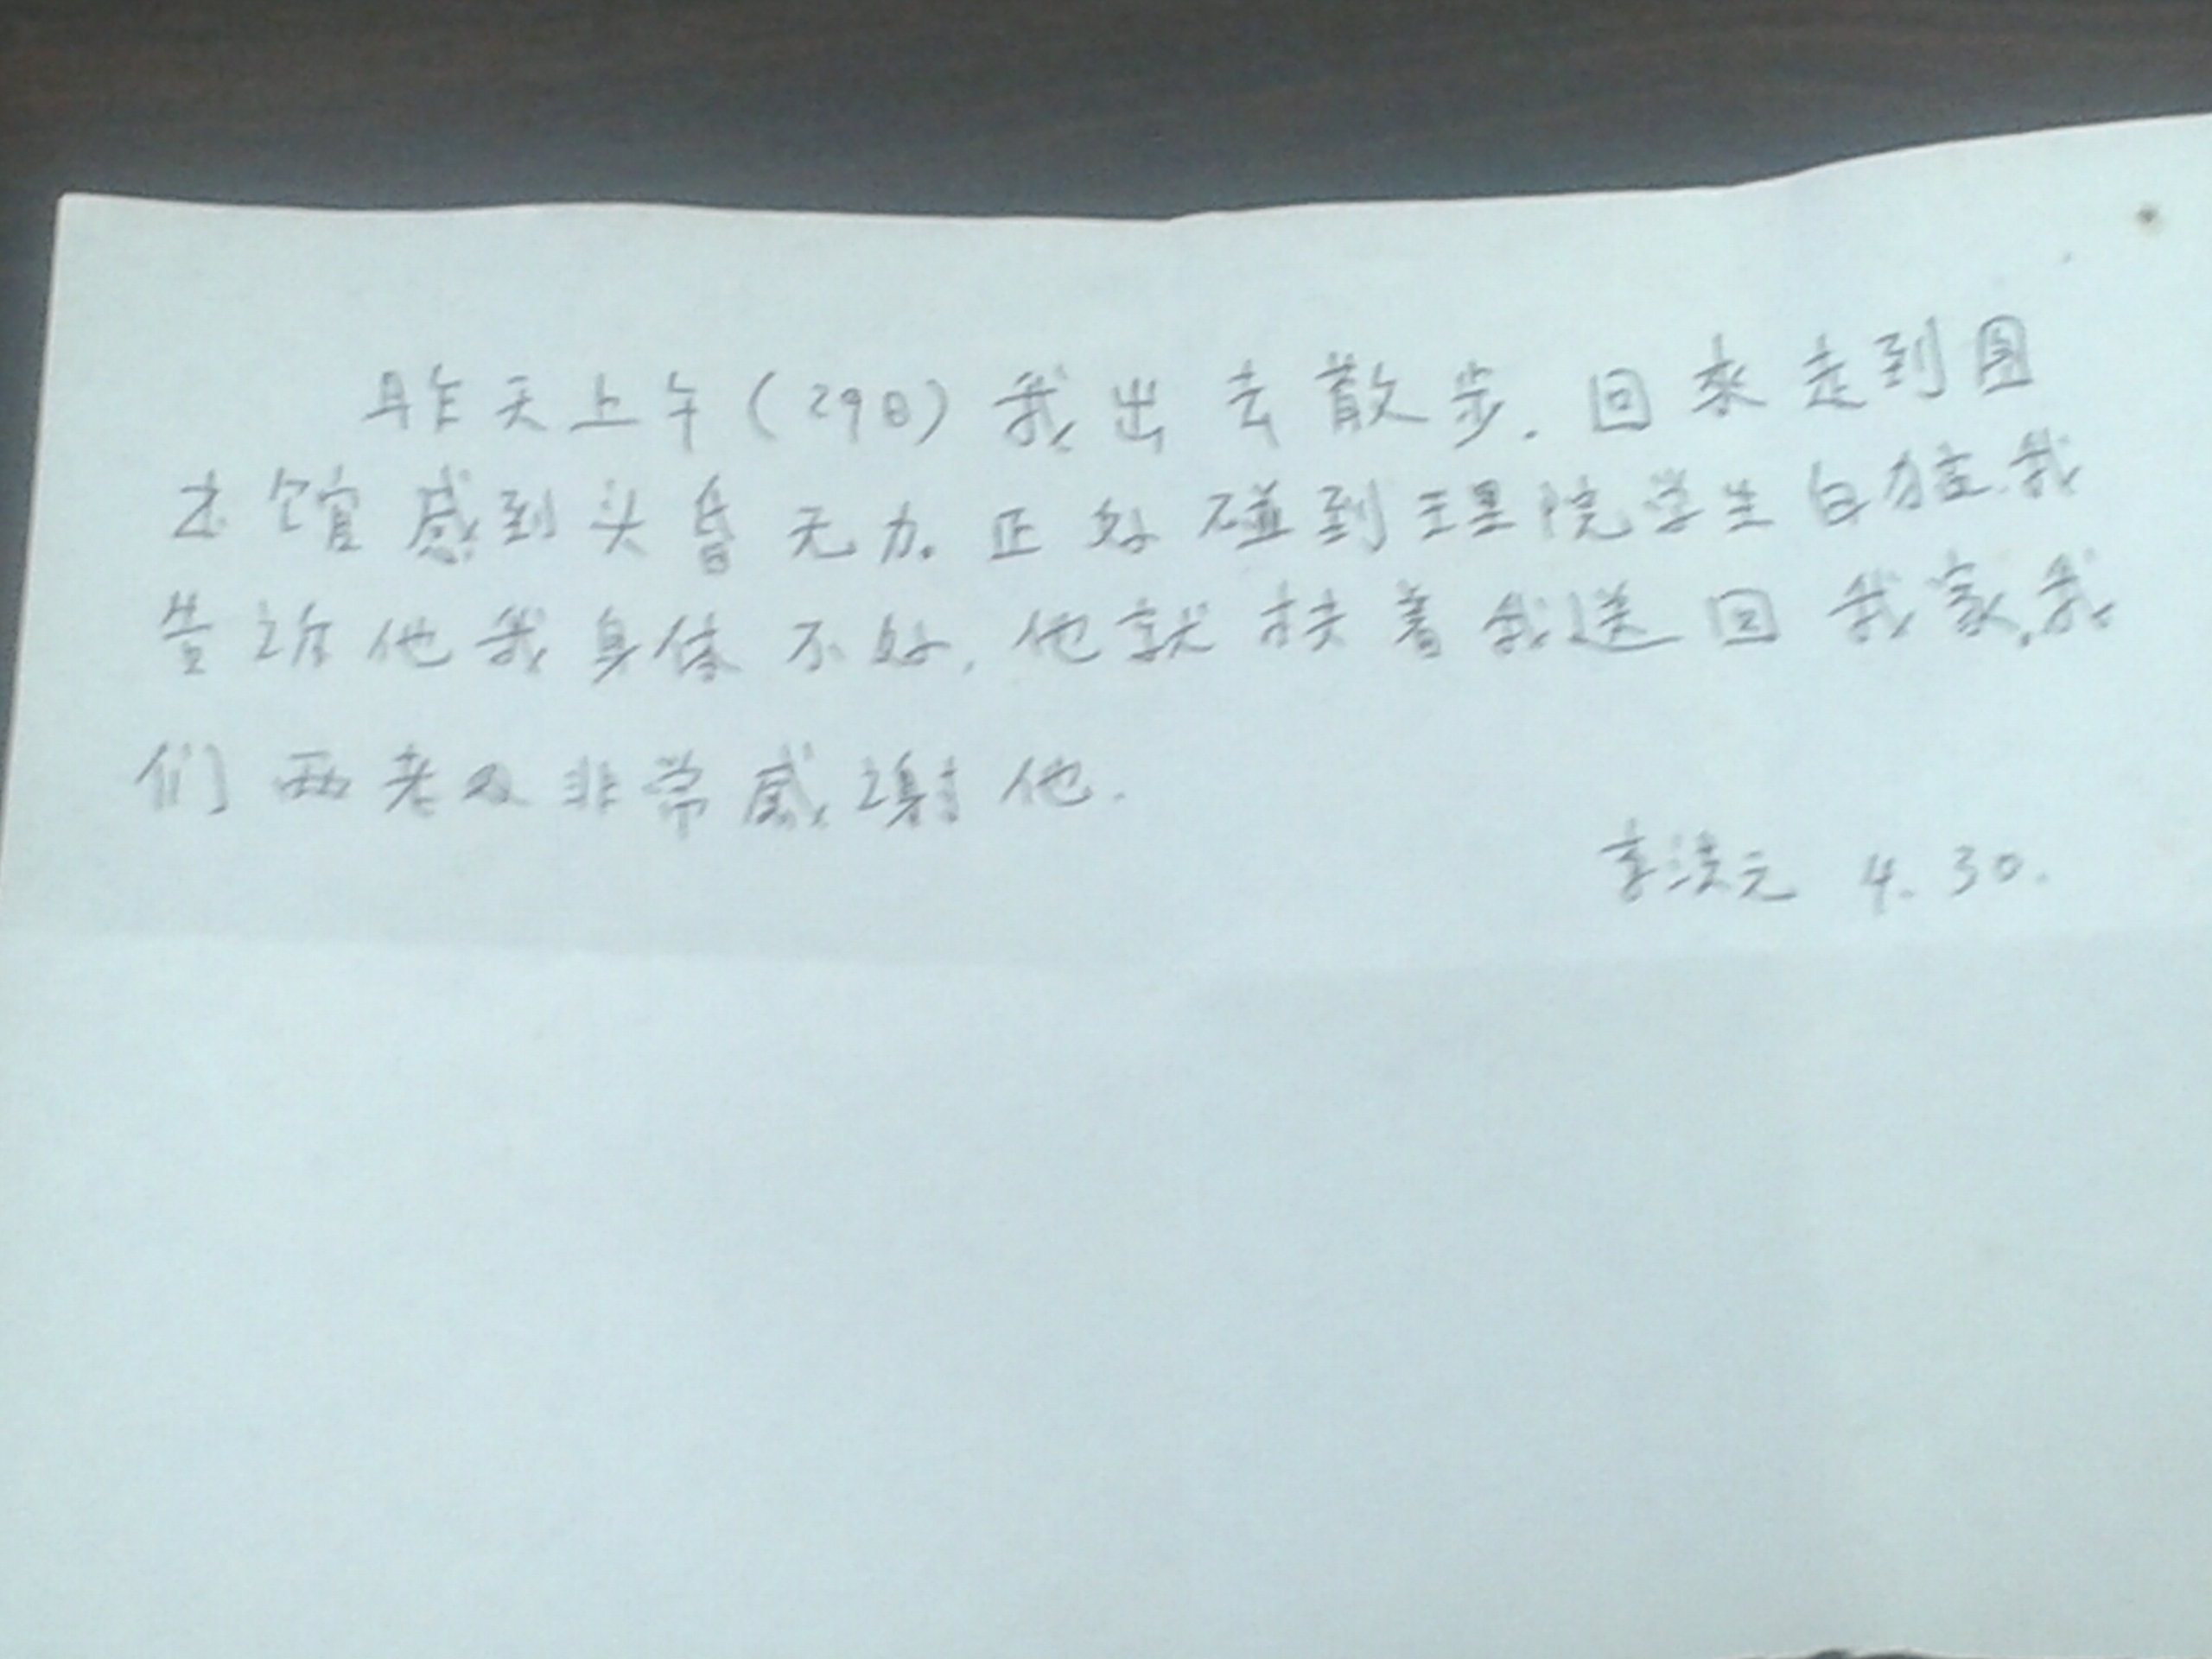 昨天上午(29日)我出去散步.回来走到图
书馆感到头昏无力.正好碰到理院学生白.我
告诉他我身体不好,他就扶着我送回我家,我
们两老非常感谢他.
李元 4.30.